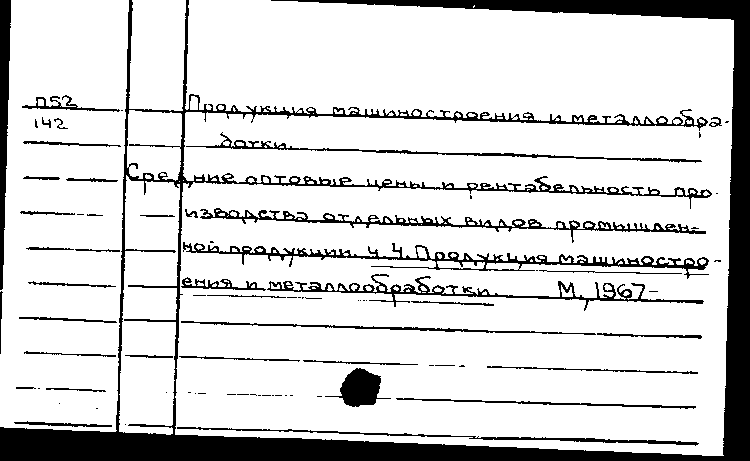 П52
142
Продукция машиностроения и металлообра-
ботки.
Средние оптовые цены и рентабельность про-
изводства отдельных видов промышлен-
ной продукции. ч. 4. Продукция машиностро-
ения и металлообработки. М., 1967-